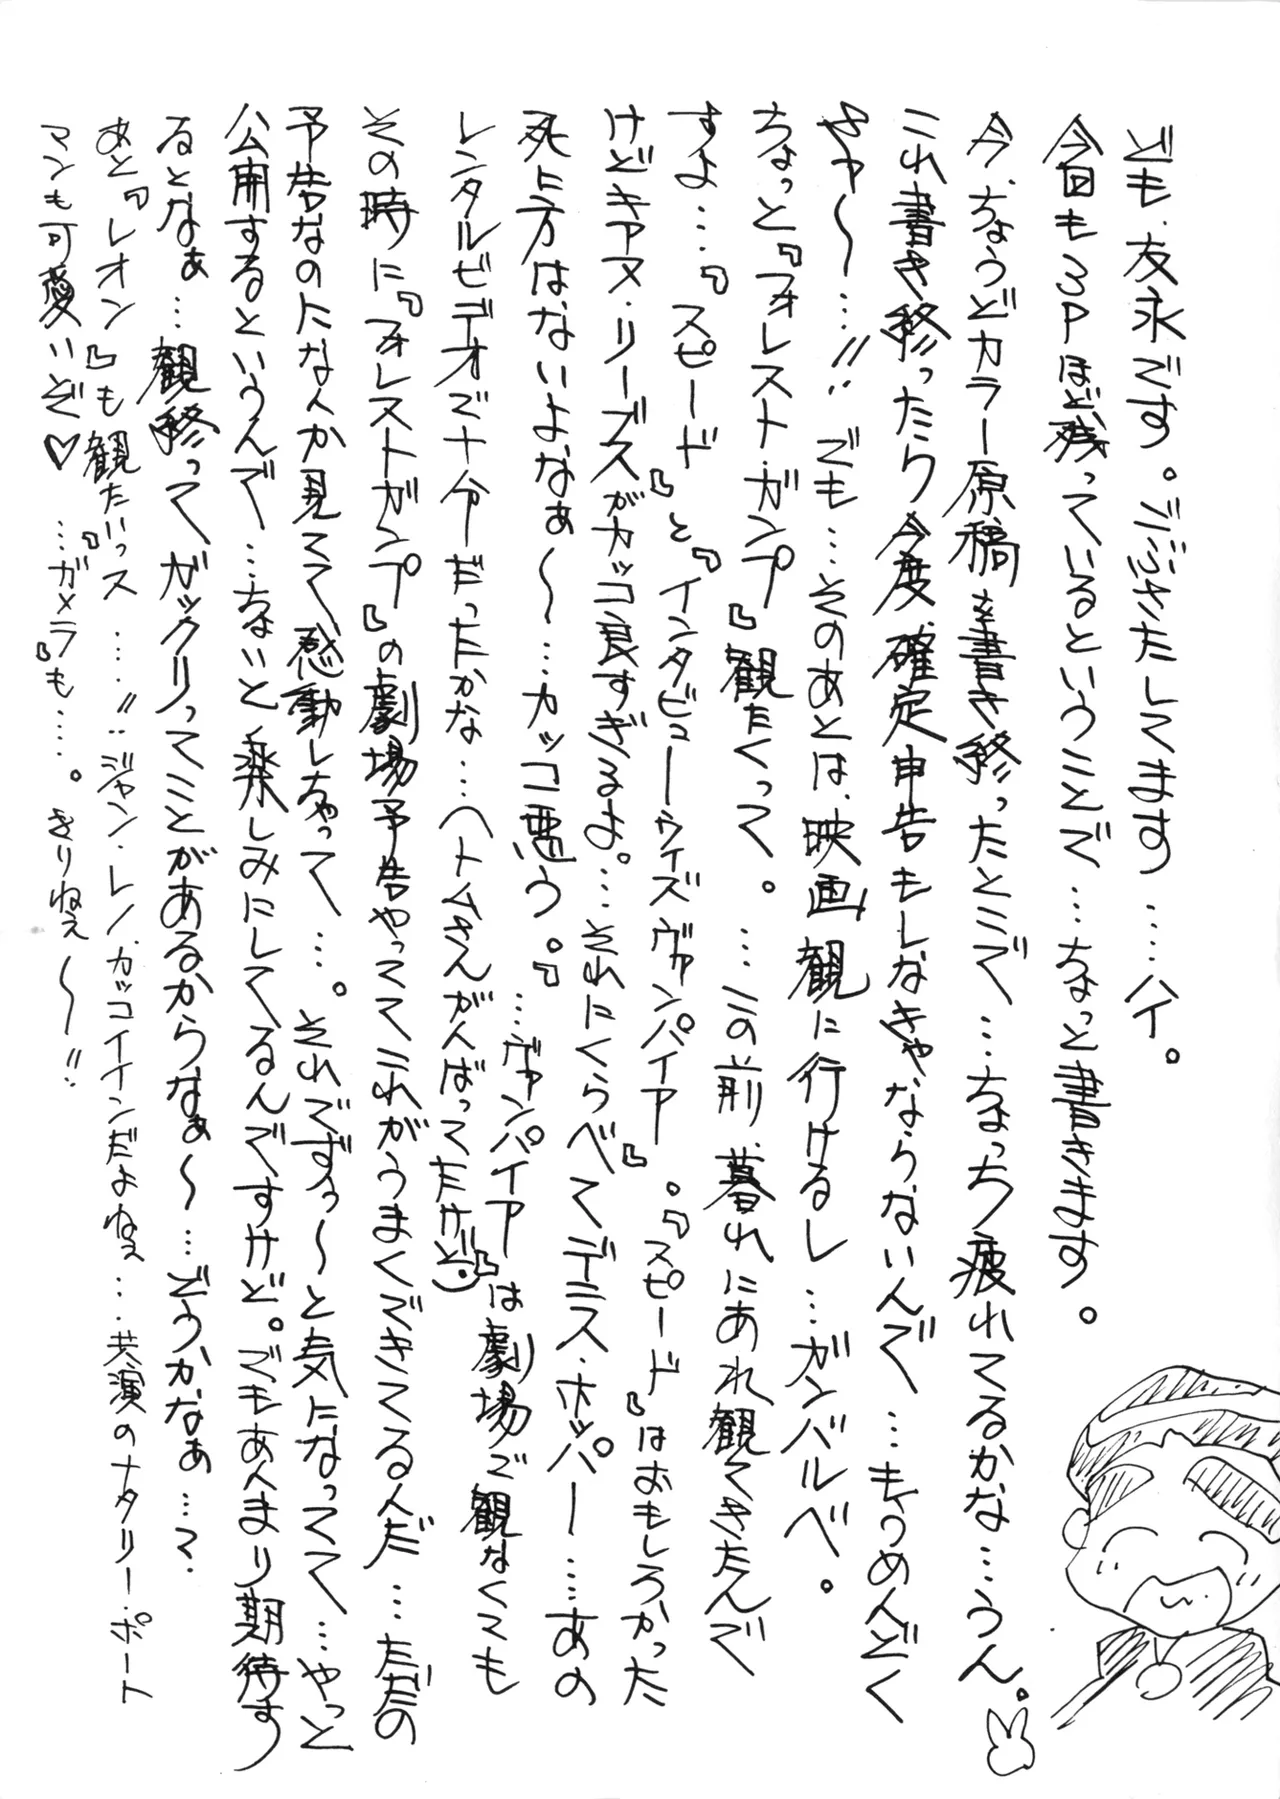 ども、友永です。ごぶさたしてます……ハイ。
今回も3Pほど残っているということで…ちょっと書きます。
今、ちょうどカラー原稿を書き終ったとこで…ちょっち疲れてるかな…うん。
これ書き終ったら今度、確定申告もしなきゃならないんで…もうめんどく
さァ〜…!!でも…そのあとは、映画観に行けるし…ガンバルべ。
ちょっと『フォレスト・ガンプ』観たくって。…この前、暮れにあれ観てきたんで
すよ…『スピード』と『インタビューウィズヴァンパイア』。『スピード』はおもしろかった
けどキアヌ・リーブスがカッコ良すぎるよ。…それにくらべてデニス・ホッパー……あの
死に方はないよなぁ〜…カッコ悪う。』…ヴァンパイア』は劇場で観なくても
レンタルビデオで十分だったかな…(トムさんがんばってたけど)
その時に『フォレストガンプ』の劇場予告やっててこれがうまくできてるんだ…ただの
予告なのになんか見てて感動しちゃって…。それでずぅ〜と気になってて…やっと
公開するというんで…ちょいと楽しみにしてるんですけど。でもあんまり期待す
るとなぁ…観終ってガックリってことがあるからなぁ〜…どうかなぁ…て
あと『レオン』も観たいっス…!!ジャン・レノ、カッコイイんだよねぇ…共演のナタリー・ポート
マンも可愛いぞ♡…『ガメラ』も…。きりねぇ〜!!